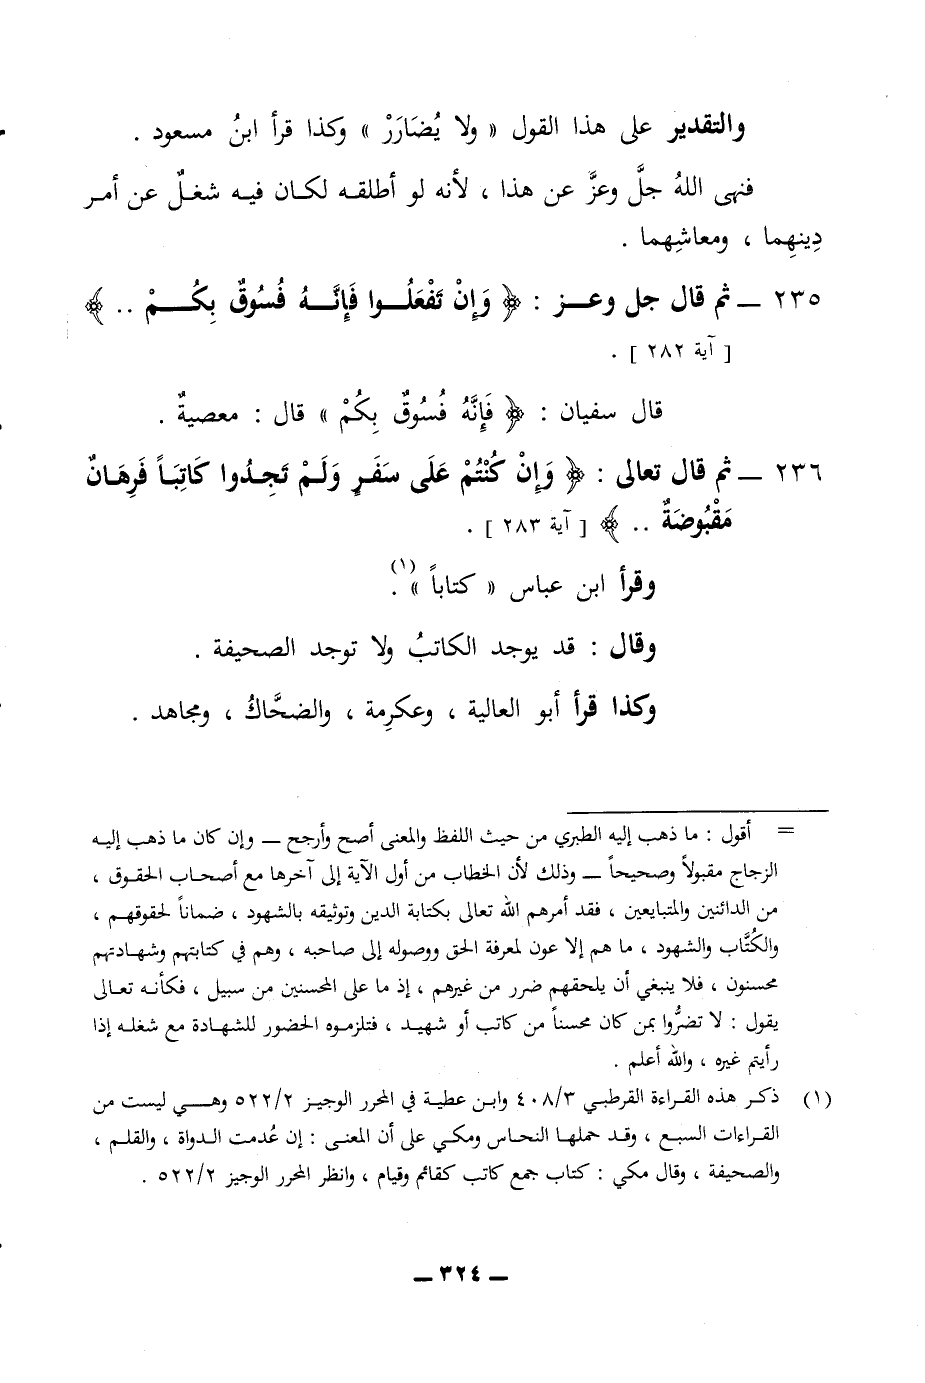 والتقدير على هذا القول « ولا يُضَارَرْ » وكذا قرأ ابنُ مسعود .
فنهى اللهُ جلَّ وعزَّ عن هذا ، لأنه لو أطلقه لكان فيه شغلٌ عن أمر
دِينِهِما ، ومعاشِهِما .
٢٣٥ ــ ثم قال جل وعز : ﴿ وَإِنْ تَفْعَلُوا فَإِنَّهُ فُسُوقٌ بِكُمْ .. ﴾
[ آية ٢٨٢ ] .
قال سفيان : ﴿ فَإِنَّهُ فُسُوقٌ بِكُمْ » قال : معصيةٌ .
٢٣٦ ــ ثم قال تعالى : ﴿ وَإِنْ كُنْتُمْ عَلَى سَفَرٍ وَلَمْ تَجِدُوا كَاتِبَاً فَرِهَانٌ
مَقْبُوضَةٌ .. ﴾ [ آية ٢٨٣ ] .
وقرأ ابن عباس « كتاباً »(١) .
وقال : قد يوجد الكاتبُ ولا توجد الصحيفة .
وكذا قرأ أبو العالية ، وعكرِمة ، والضحَّاكُ ، ومجاهد .
= أقول : ما ذهب إليه الطبري من حيث اللفظ والمعنى أصح وأرجح ــ وإن كان ما ذهب إليه
الزجاج مقبولاً وصحيحاً ــ وذلك لأن الخطاب من أول الآية إلى آخرها مع أصحاب الحقوق ،
من الدائنين والمتبايعين ، فقد أمرهم الله تعالى بكتابة الدين وتوثيقه بالشهود ، ضماناً لحقوقهم ،
والكُتَّاب والشهود ، ما هم إلا عون لمعرفة الحق ووصوله إلى صاحبه ، وهم في كتابتهم وشهادتهم
محسنون ، فلا ينبغي أن يلحقهم ضرر من غيرهم ، إذ ما على المحسنين من سبيل ، فكأنه تعالى
يقول : لا تضرُّوا بمن كان محسناً من كاتب أو شهيد ، فتلزموه الحضور للشهادة مع شغله إذا
رأيتم غيره ، والله أعلم .
(١) ذكر هذه القراءة القرطبي ٤٠٨/٣ وابن عطية في المحرر الوجيز ٥٢٢/٢ وهي ليست من
القراءات السبع ، وقد حملها النحاس ومكي على أن المعنى : إن عُدمت الدواة ، والقلم ،
والصحيفة ، وقال مكي : كتاب جمع كاتب كقائم وقيام ، وانظر المحرر الوجيز ٥٢٢/٢ .
ــ ٣٢٤ ــ